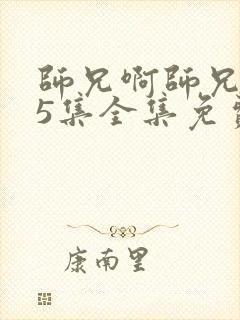 師兄啊師兄
5集全集免
康南里